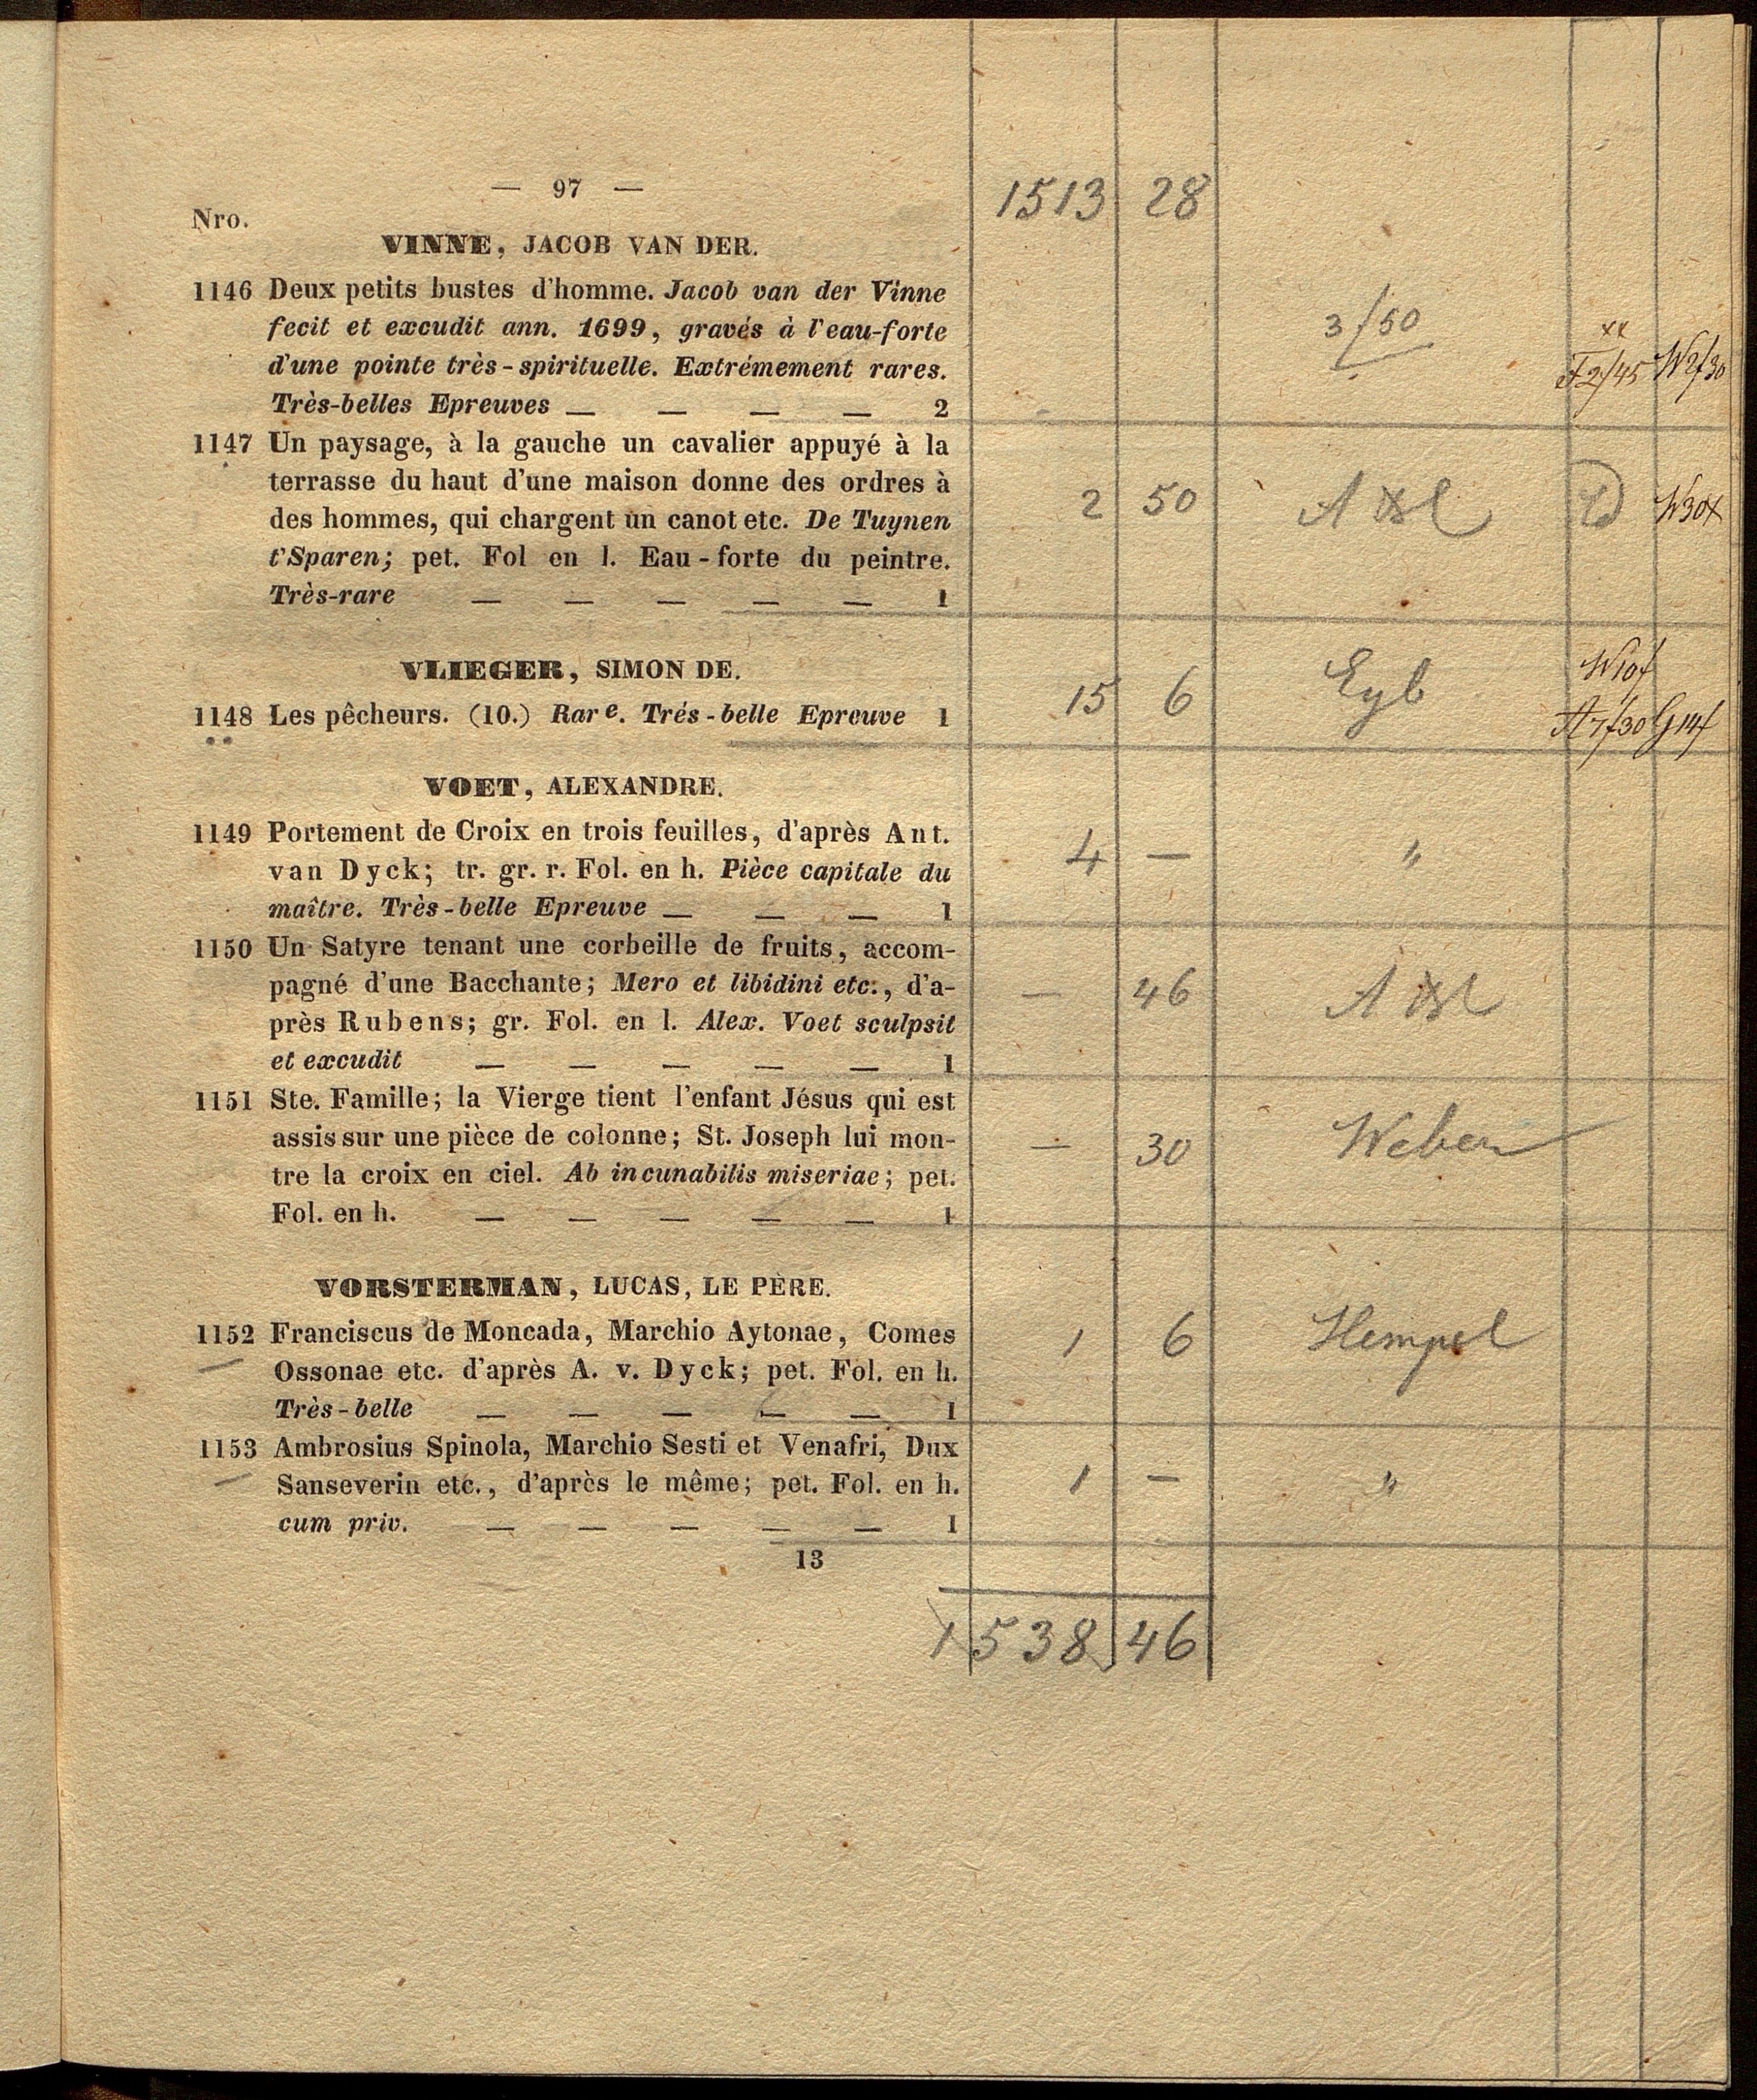 — 97 —
1513 28
Nro.
VINNE, JACOB VAN DER.
1146 Deux petits bustes d'homme. Jacob van der Vinne
fecit et excudit ann. 1699, gravés à l'eau-forte
d'une pointe très-spirituelle. Extrémement rares.
Très-belles Epreuves — — — — 2
3/50
xx
F2/45 W2f30
1147 Un paysage, à la gauche un cavalier appuyé à la
terrasse du haut d'une maison donne des ordres à
des hommes, qui chargent un canot etc. De Tuynen
t'Sparen; pet. Fol en l. Eau-forte du peintre.
Très-rare — — — — — 1
2 50
W30x
VLIEGER, SIMON DE.
1148 Les pêcheurs. (10.) Rare. Trés-belle Epreuve 1
15 6 Eyb
W10f
A7f30 G14f
VOET, ALEXANDRE.
1149 Portement de Croix en trois feuilles, d'après Ant.
van Dyck; tr. gr. r. Fol. en h. Pièce capitale du
maître. Très-belle Epreuve — — — 1
4 — "
1150 Un Satyre tenant une corbeille de fruits, accom-
pagné d'une Bacchante; Mero et libidini etc., d'a-
près Rubens; gr. Fol. en l. Alex. Voet sculpsit
et excudit — — — — — 1
— 46
1151 Ste. Famille; la Vierge tient l'enfant Jésus qui est
assis sur une pièce de colonne; St. Joseph lui mon-
tre la croix en ciel. Ab incunabilis miseriae; pet.
Fol. en h. — — — — — 1
— 30 Weber
VORSTERMAN, LUCAS, LE PÈRE.
1152 Franciscus de Moncada, Marchio Aytonae, Comes
Ossonae etc. d'après A. v. Dyck; pet. Fol. en h.
Très-belle — — — — — 1
1 6 Hempel
1153 Ambrosius Spinola, Marchio Sesti et Venafri, Dux
Sanseverin etc., d'après le même; pet. Fol. en h.
cum priv. — — — — — 1
1 — "
13
1538 46